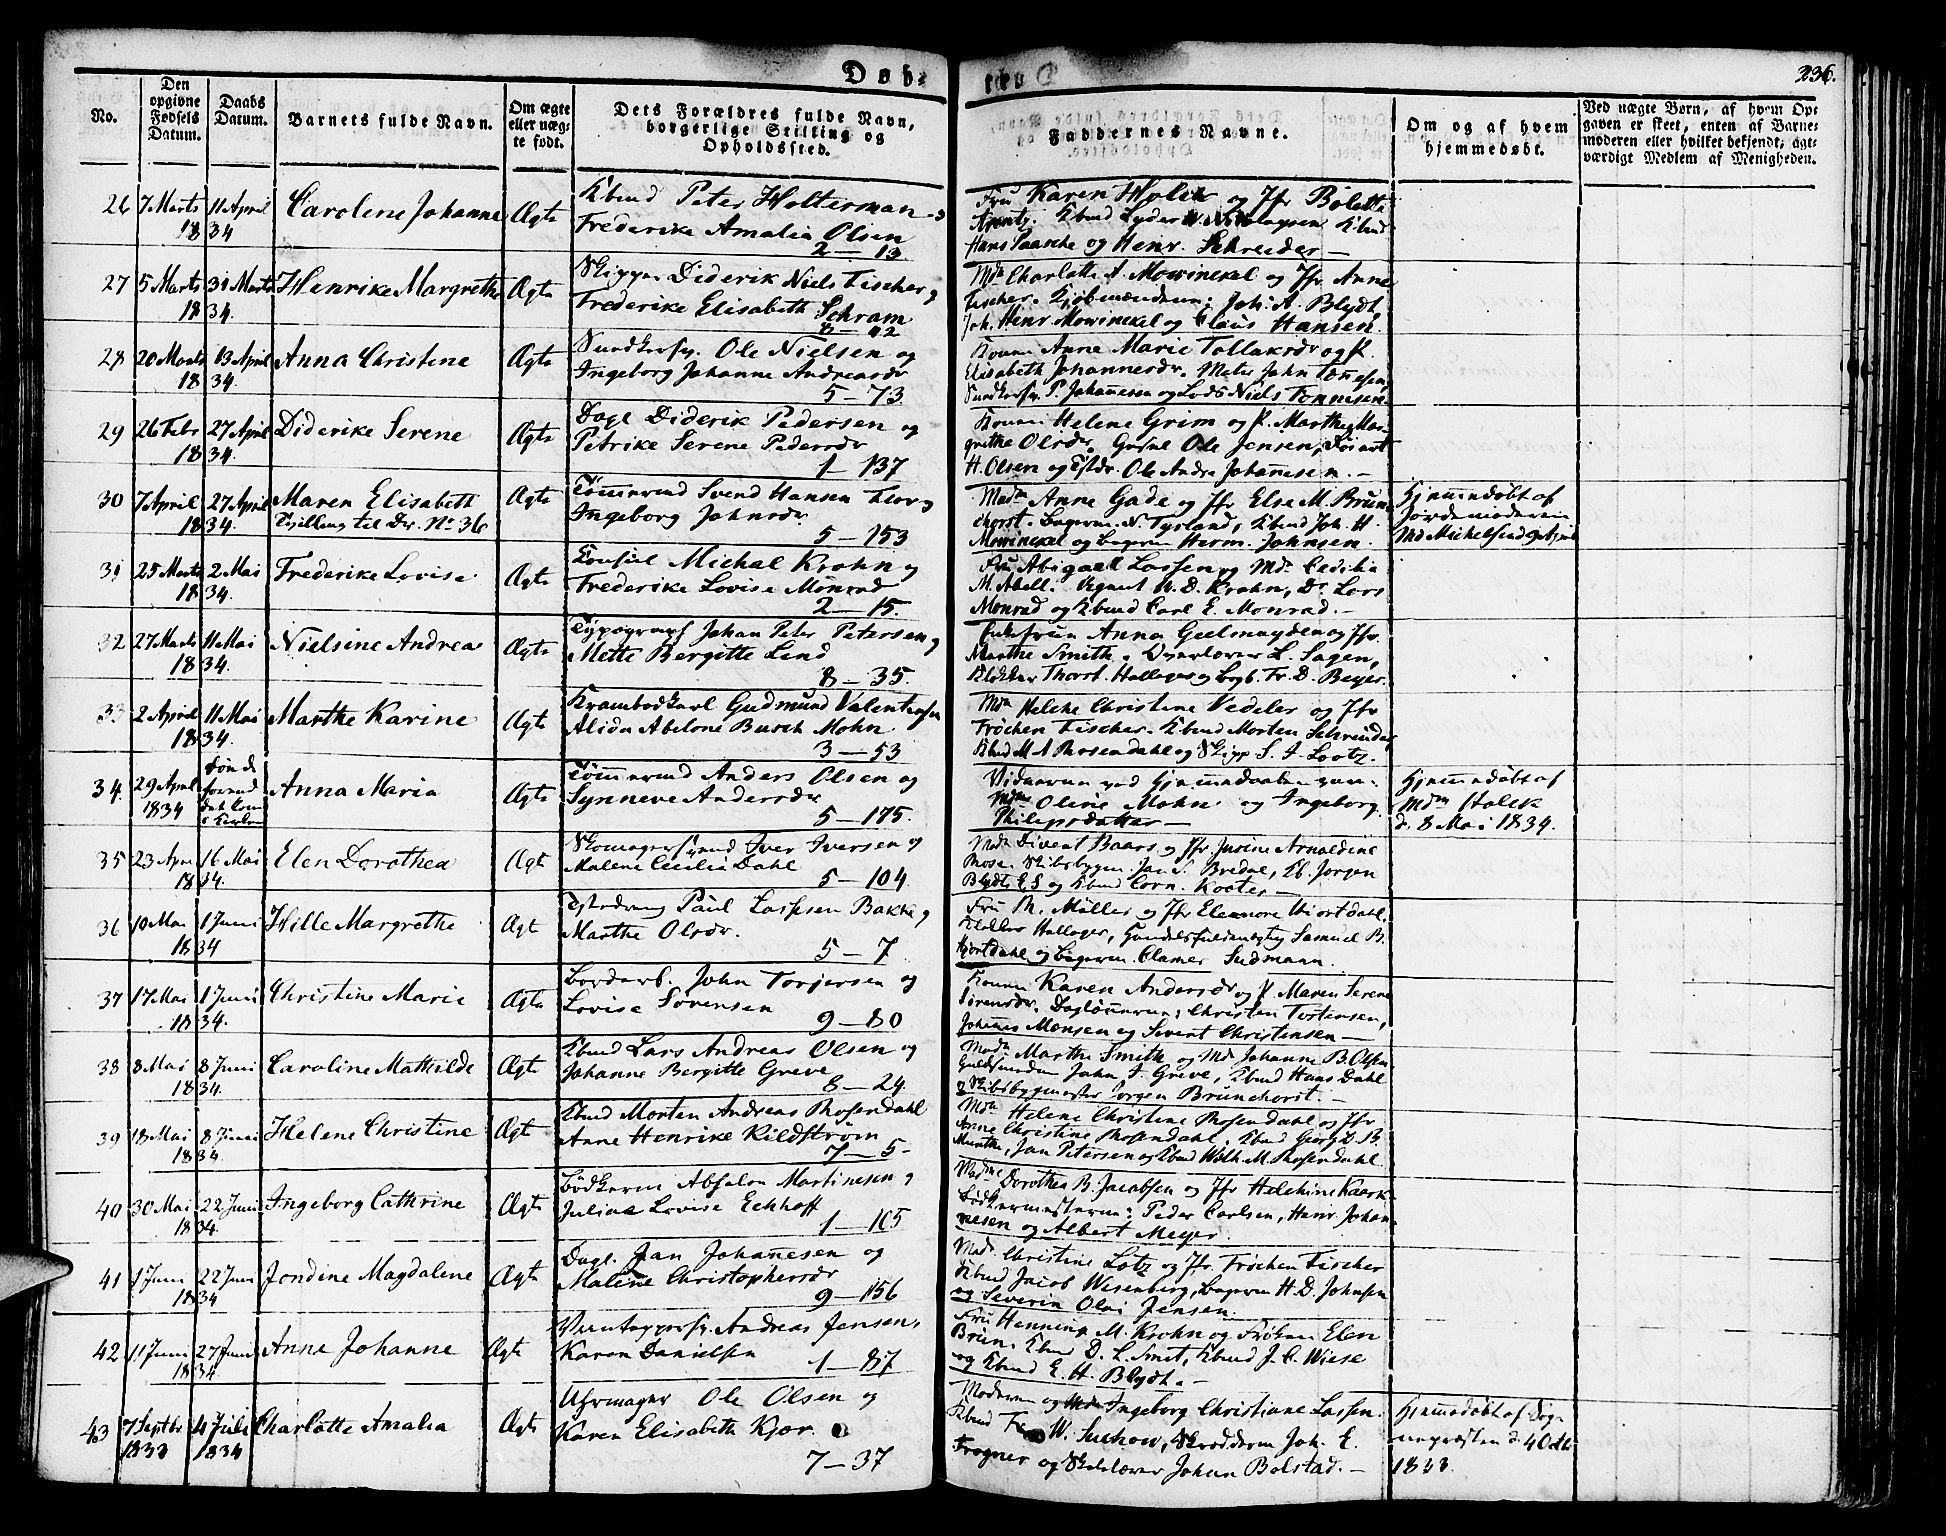 Døbte
236.
No.
Den opgivne Fødsels Datum.
Daabs Datum.
Barnets fulde Navn.
Om ægte eller uægte født.
Dets Forældres fulde Navn, borgerlige Stilling og Opholdssted.
Faddernes Navne.
Om og af hvem hjemmedøbt.
Ved uægte Børn, af hvem Opgaven er skeet, enten af Barnemoderen eller hvilket bekjendt, agtværdigt Medlem af Menigheden.
26 7 Marts 11 April Carolene Johanne Ægte Kbmd Peter Holterman
1834 Frederike Amalia Olsen
2 — 13
Fru Karen Holck og Jfr Bolette
Kbmd Lyder W. Nicolaysen Kbmd
Hans Paasche og Henr. Schreuder —
27 5 Marts 31 Marts Henrike Margrethe Ægte Skipper Diderik Niels Fischer og
1834. Frederike Elisabeth Schram
8 — 12
Mdm Charlotte A. Mowinckel og Jfr Anne
Fischer. Kjøbmændene: Joh: A. Blydt,
Joh. Henr Mowinckel og Claus Hansen.
28 20 Marts 13 April Anna Christene Ægte Ole Nielsen og
1834. Ingeborg Johanne Andreasdr
5 — 73.
Konen Anne Marie Tollaksdr og P.
Elisabeth Johannesdr. Mater John Tønnesen,
P. Johannesen og Lods Niels Tønnesen.
29 26 Febr 27 April Diderike Serene Ægte Dagl Diderik Pedersen og
1834. Petrike Serene Pedersdr
1 — 137
Konen Helene Grim og P. Marthe Mar-
grethe Olsdr, Ole Jensen,
H. Olsen og Ole Andr. Johannesen. —
30 7 April 27 April Maren Elisabeth Ægte Tømmermd Svend Hansen Flor og
1834. Tvilling til Dr. No 36 Ingeborg Johnsdr.
5 — 153
Madm Anne Gade og Jfr Else M. Brun-
chorst. Bageren N. Tysland, Kbmd Joh. H.
Mowinckel og Bageren Herm. Johnsen.
Hjemmedøbt af
Jordemoderen
Md Michelsen
31 25 Marts 2 Mai Frederike Lovise Ægte Consul Michal Krohn og
1834. Frederike Lovise Monrad
2 — 15.
Fru Abigael Lassen og Mdm Cecilia
M. Abell. Agent W. D. Krohn, Dr Lars
Monrad og Kbmd Carl E. Monrad. —
32 27 Marts 11 Mai Nielsine Andrea Ægte Typograph Johan Peter Petersen og
1834. Mette Bergitte Lind
8 — 35.
Enkefruen Anna Geelmuyden og Jfr
Marthe Smith. Overlærer L. Sagen,
Klokker Thorst. Hallager og Bogb. Fr. D. Beyer.
33 2 April 11 Mai Marthe Karine Ægte Krambodkarl Gudmund Valentinsen
1834. Alida Abelone Busch Mohn
3 — 53
Mdm Helene Christine Vedeler og Jfr
Frøchen Fischer. Kbmd Morten Schreuder,
Kbmd M. A. Rosendahl og Skipp S. J. Lootz.
34. 29 April Anna Maria Ægte Tømmermd Anders Olsen og
1834 Synneve Andersdr
5 — 175.
Vidnerne ved Hjemmedaaben vare
Mdm Oline Mohn og Ingeborg
Philipsdatter —
Hjemmedøbt af
Mdm Holck
d. 8 Mai 1834.
35 23 Apr 16 Mai Elen Dorothea Ægte Skomagersvend Iver Iversen og
1834. Malene Cecilia Dahl
5 — 104
Mdm Sivert Baars og Jfr Jusine Arnoldine
Rose. Skibsbygger Jac S. Bredal, Kb. Jørgen
Blydt E. S og Kbmd Corn. Kooter —
36 10 Mai 1 Juni Hille Margrethe Ægt Paul Lassesen Bakke og
1834 Marthe Olsdr.
5 — 7
Fru M. Müller og Jfr Eleonore Hiortdahl,
Klokker Hallager, Handelsfuldmægtig Samuel B.
Hjortdahl og Bageren Clamer Sudmann.
37 17 Mai 1 Juni Christine Marie Ægte Bordarb. John Torjersen og
1834. Lovise Sørensen
9 — 80
Konen Karen Andersdr og P. Maren Serene
Sørensdr. Dagleierne: Christen Torstensen,
Johannes Monsen og Sivert Christensen —
38 8 Mai 8 Juni Caroline Mathilde Ægt Kbmd Lars Andreas Olsen og
1834. Johanne Bergitte Greve
8 — 24
Madm Marthe Smith og Mdm Johanne B. Olsen
Guldsmeden John J. Greve, Kbmd Hans Dahl
og Skibsbygmester Jørgen Brunchorst. —
39 18 Mai 8 Juni Helene Christine Ægt Kbmd Morten Andreas Rosendahl
1834. Anne Henrike Kildstrøm
7 — 5 -
Mdm Helene Christine Rosendahl og Jfr
Anne Christine Rosendahl. Kbmd Georg D. B.
Munthe, Jan Petersen og Kbmd Wilh. M. Rosendahl.
40 30 Mai 22 Juni Ingeborg Cathrine Ægte Bødkeren Absalon Martinesen og
1834. Juliae Lovise Eckhoff
1 — 105
Madme Dorothea B. Jacobsen og Jfr Helchine Kaark
Bødkermesterne: Peder Carlsen, Henr. Johan-
nesen og Albert Meyer.
41 1 Juni 22 Juni Jondine Magdalene Ægte Dagl. Jan Johanesen og
1834 Malene Christophersdr
9 — 156
Mad. Christine Lotz og Jfr. Frøchen Fischer
Kbmd Jacob Wesenberg, Bageren H. D. Johnsen
og Severin Olai Jensen.
42 11 Juni 27 Juni Anne Johanne Ægte Andreas Jensen,
1834 Karen Danielsen
1 — 87
Fru Henning M. Krohn og Frøken Elen
Brun. Kbmd D. L. Smit, Kbmd J. C. Wiese
og Kbmd E. H. Blydt. —
43 7 Septbr 4 Juli Charlotte Amalia Ægte Uhrmager Ole Olsen og
1833 1834 Karen Elisabeth Kjør
7 — 37
Moderen og Mdm Ingeborg Christiane Lassen.
Kbmd Fr W. Suckow, Skrædderen Joh. E.
Frogner og Skolelærer Johan Bolstad. —
Hjemmedøbt af Sog-
nepræsten d.
1833.